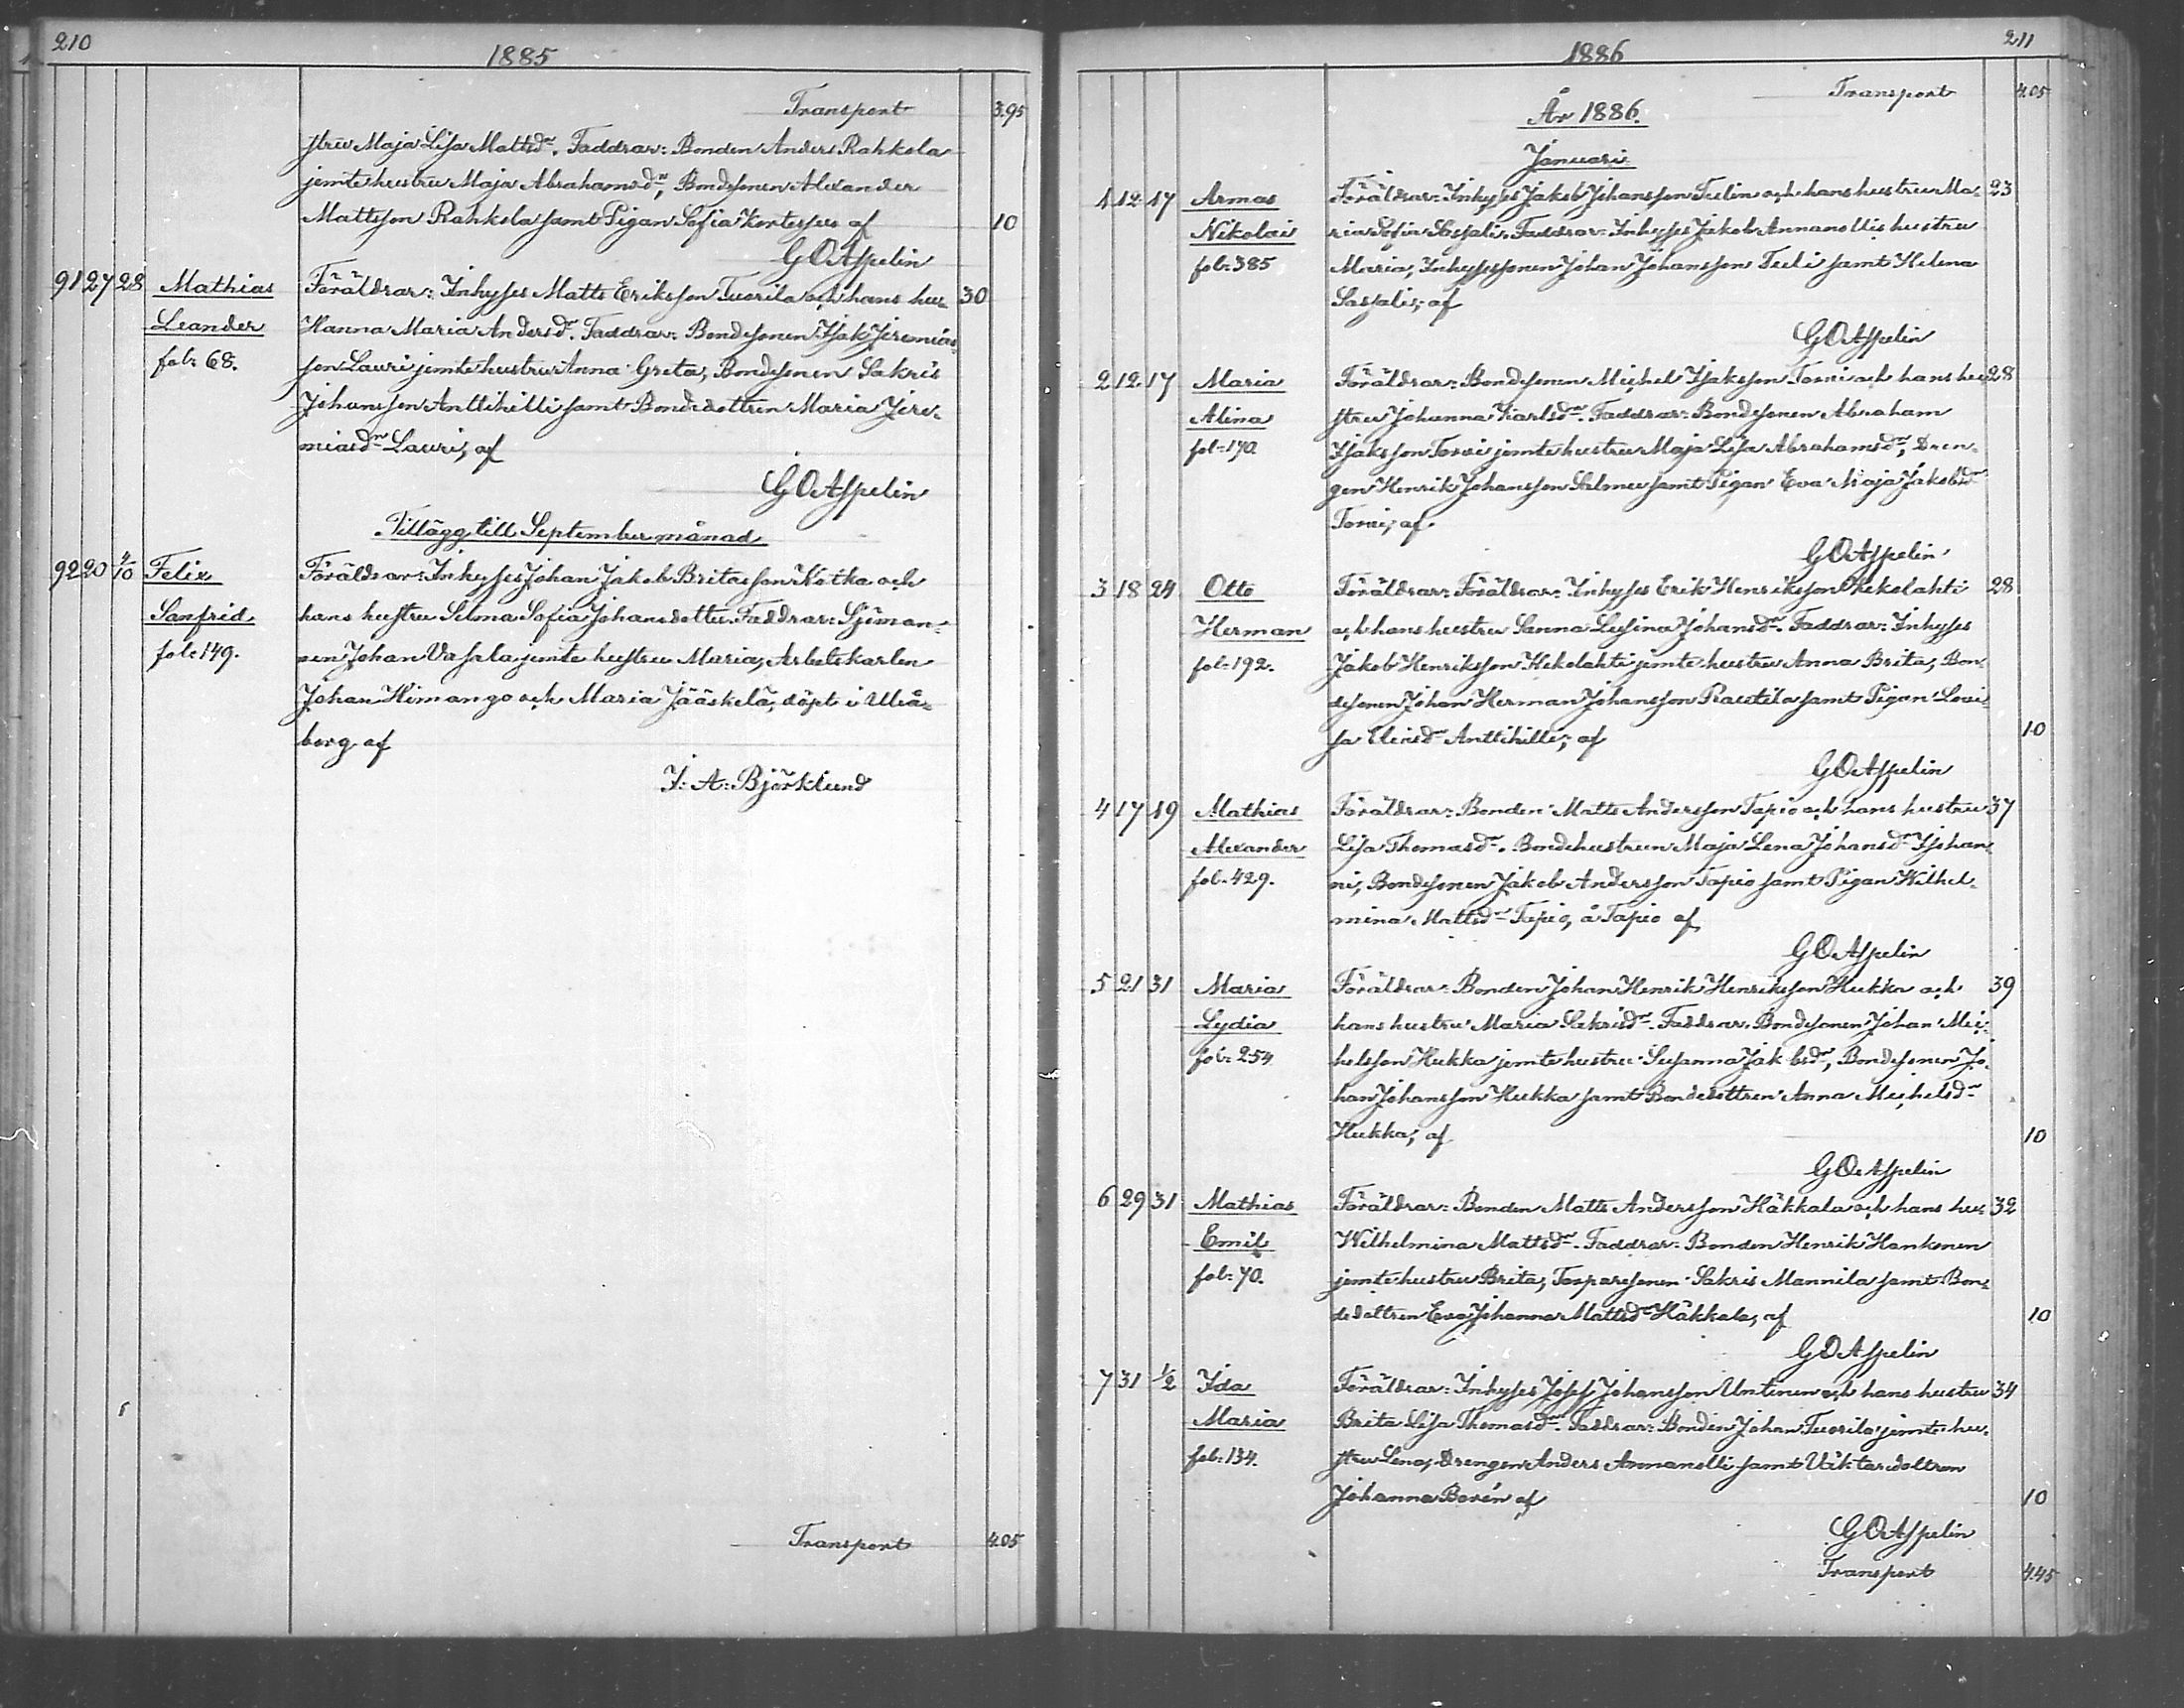 210
1885
Transport 3.95
stru Maja Lisa Mattsdr. Faddrar: Bonden Anders Rahkola
jemte hustru Maja Abrahamsdr, Bondesonen Alexander
Mattsson Rahkola samt Pigan Sofia Kortessuo af 10
G O Aspelin
91 27 28 Mathias Föräldrar: Inhyses Matts Eriksson Tuorila och hans hu- 30
Leander Hanna Maria Andersdr. Faddrar: Bondesonen Isak Jeremias
fol: 68. son Lauri jemte hustru Anna Greta, Bondesonen Sakris
Johansson Anttihilli samt Bondedottren Maria Jere-
miasdr Lauri; af
G O Aspelin
Tillägg till September månad
92 20 4/10 Felix Föräldrar: Inhyses Johan Jakob Britasson Kotka och
Sanfrid hans hustru Selma Sofia Johansdotter. Faddrar: Sjöman-
fol: 149. nen Johan Vasala jemte hustru Maria, Arbetskarlen
Johan Himango och Maria Jääskelä; döpt i Uleå-
borg af
J. A. Björklund
Transport 4.05
211
1886
Transport 4.05
År 1886.
Januari
1 12 17 Armas Föräldrar: Inhyses Jakob Johansson Tulin och hans hustru Ma- 23
Nikolai ria Sofia Sassali. Faddrar: Inhyses Jakob Annanollis hustru
fol: 385 Maria, Inhysessonen Johan Johansson Tuli samt Helena
Sassali; af
G O Aspelin
2 12 17 Maria Föräldrar: Bondesonen Michel Isaksson Torvi och hans hu- 28
Alina stru Johanna Karlsdr. Faddrar: Bondesonen Abraham
fol: 170. Isaksson Torvi jemte hustru Maja Lisa Abrahamsdr, Dren-
gen Henrik Johansson Salmu samt Pigan Eva Maja Jakobsdr
Torvi; af
G O Aspelin
3 18 24 Otto Föräldrar: Föräldrar: Inhyses Erik Henriksson Kekolahti 28
Herman och hans hustru Sanna Lusina Johansdr. Faddrar: Inhyses
fol: 192. Jakob Henriksson Kekolahti jemte hustru Anna Brita, Bon-
desonen Johan Herman Johansson Rautila samt Pigan Loui-
sa Eliasdr Anttihilli; af 10
G O Aspelin
4 17 19 Mathias Föräldrar: Bonden Matts Andersson Tapio och hans hustru 37
Alexander Lisa Thomasdr. Bondehustrun Maja Lena Johansdr Isohan-
fol. 429. ni, Bondesonen Jakob Andersson Tapio samt Pigan Wilhel-
mina Mattsdr Tapio, å Tapio af
G O Aspelin
5 21 31 Maria Föräldrar: Bonden Johan Henrik Henriksson Hukka och 39
Lydia hans hustru Maria Sakrisdr. Faddrar: Bondesonen Johan Mi-
fol: 254 helsson Hukka jemte hustru Susanna Jakobsdr, Bondesonen Jo-
han Johansson Hukka samt Bondedottren Anna Michelsdr
Hukka; af 10
G O Aspelin
6 29 31 Mathias Föräldrar: Bonden Matts Andersson Häkkala och hans hu- 32
Emil Wilhelmina Mattsdr. Faddrar: Bonden Henrik Hankonen
fol: 70. jemte hustru Brita, Torparesonen Sakris Mannila samt Bon-
dedottren Eva Johanna Mattsdr Häkkala; af 10
G O Aspelin
7 31 1/2 Ida Föräldrar: Inhyses Josef Johansson Untinen och hans hustru 34
Maria Brita Lisa Thomasdr. Faddrar: Bonden Johan Tuorila jemte hu-
fol: 134. stru Lena, Drengen Anders Annanolli samt Väktardottren
Johanna Borén af 10
G O Aspelin
Transport 4.45